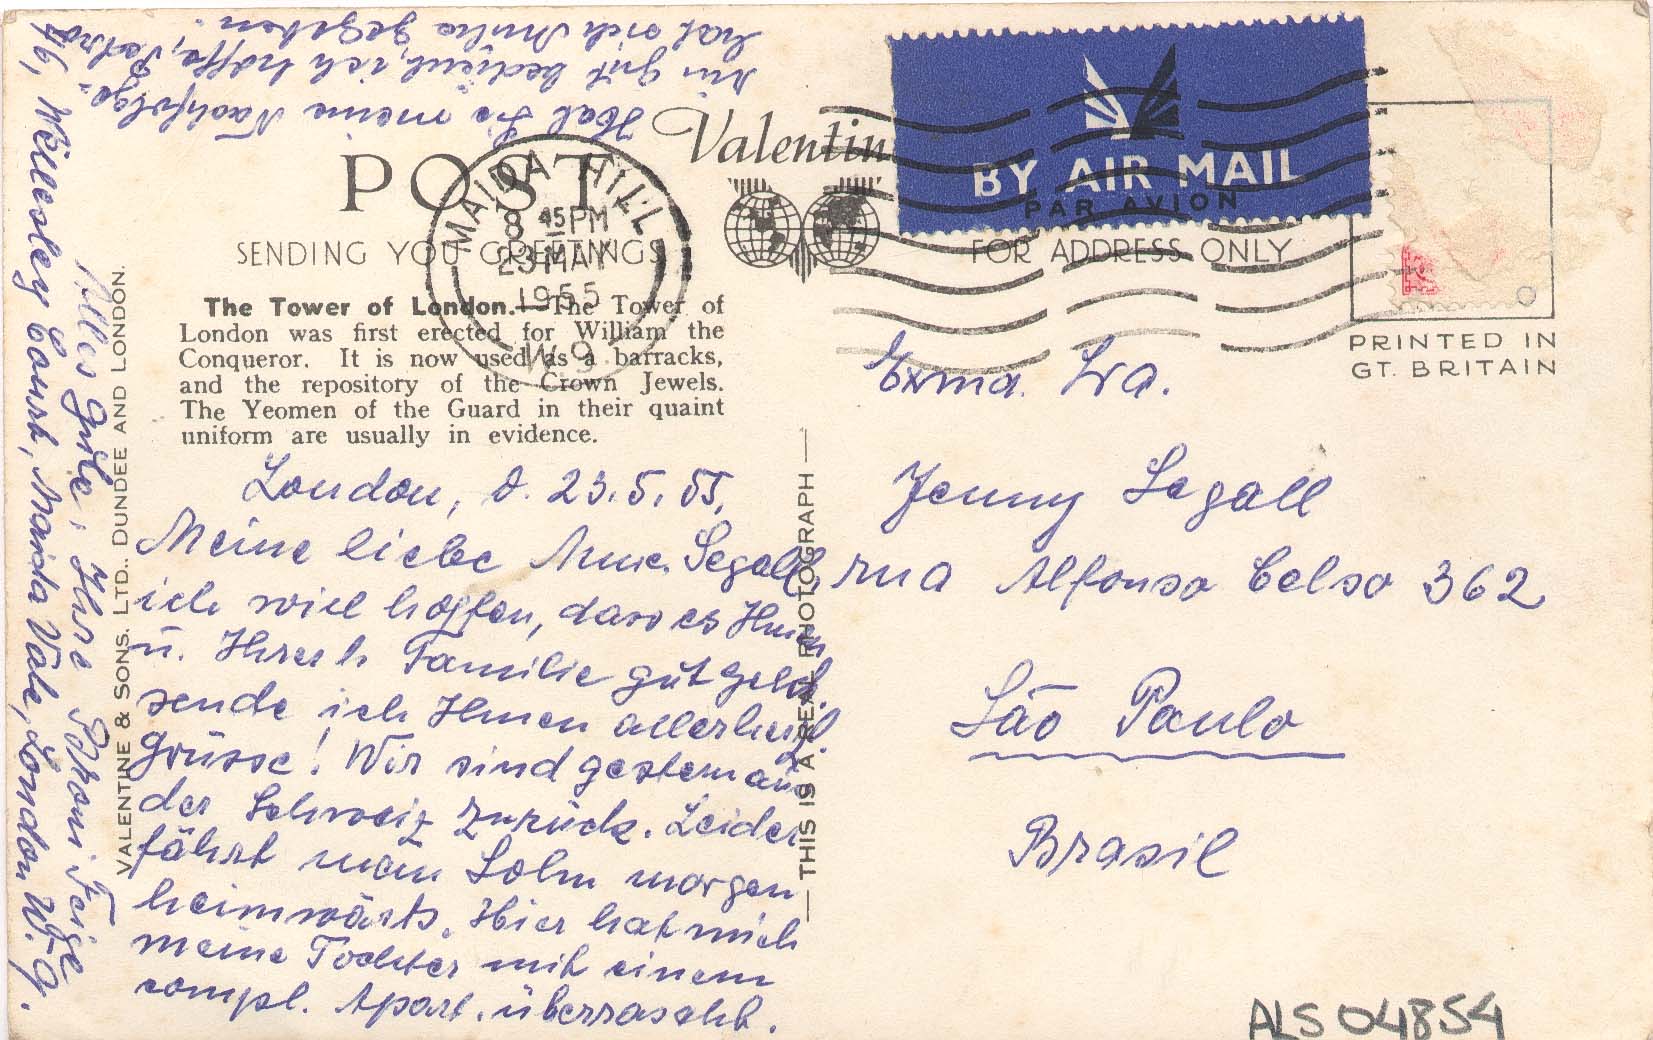 Valentine
POST
SENDING YOU GREETINGS
FOR ADDRESS ONLY
BY AIR MAIL
PAR AVION
MAIDA HILL
8 45 PM
23 MAY
1955
W.9
PRINTED IN
GT. BRITAIN
The Tower of London.—The Tower of
London was first erected for William the
Conqueror. It is now used as a barracks,
and the repository of the Crown Jewels.
The Yeomen of the Guard in their quaint
uniform are usually in evidence.
London, d. 23.5.55.
Meine liebe Segall,
ich will hoffen, dass es Ihnen
u. Ihrer Familie gut geht,
sende ich Ihnen allerherzl.
Grüsse! Wir sind gestern aus
der Schweiz zurück. Leider
fährt mein Sohn morgen
heimwärts. Hier hat mich
meine Tochter mit einem
compl. Apart. überrascht.
Hat Sie meine Nachfolge
gut bedient, ich hoffe,
hat sich Mühe gegeben.
Alles Gute, Ihre Feige
46, Wellesley Court, Maida Vale, London W. 9.
VALENTINE & SONS. LTD., DUNDEE AND LONDON.
— THIS IS A REAL PHOTOGRAPH —
Exma. Sra.
Jenny Segall
rua Alfonso Celso 362
São Paulo
Brasil
ALS 04854